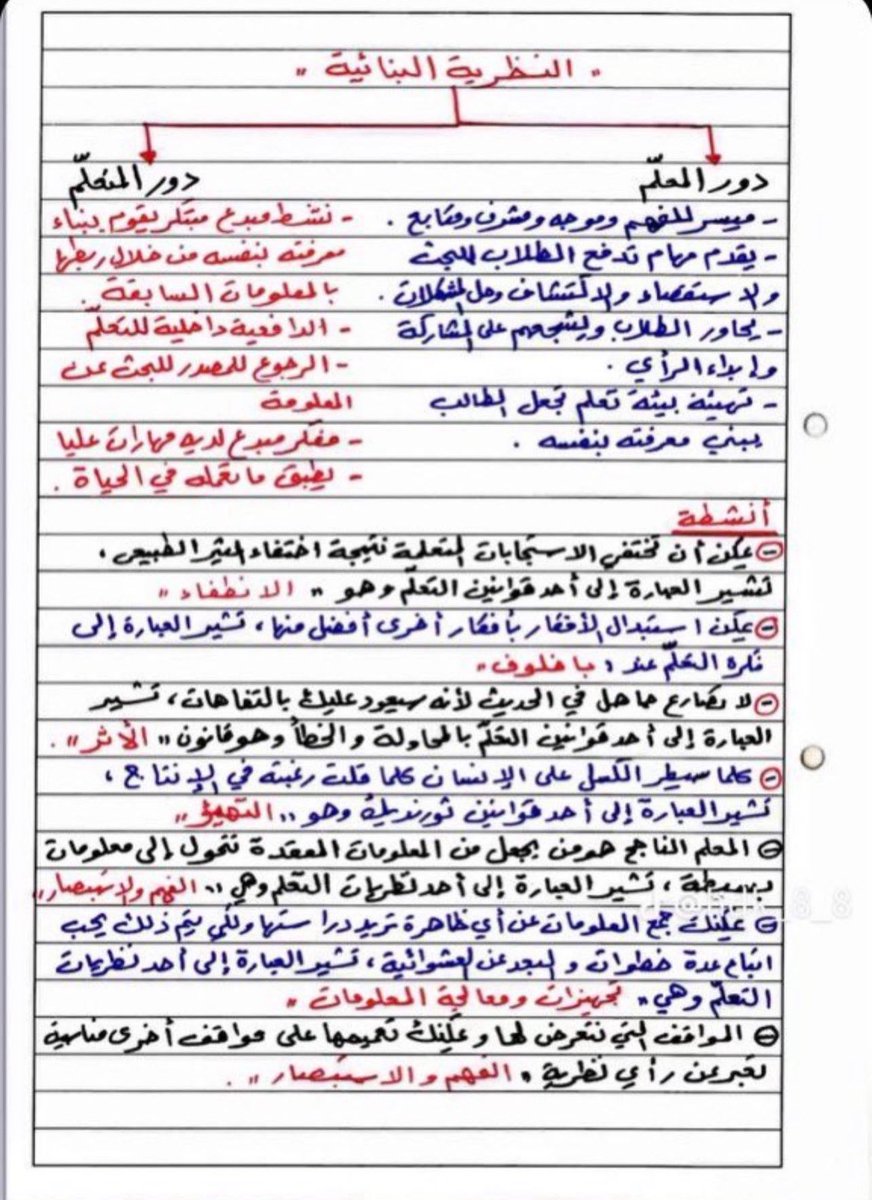 " النظرية البنائية "
دور المعلّم
- ميسر للفهم وموجه ومشرف ومتابع .
- يقدم مهام تدفع الطلاب للبحث
والاستقصاء والاكتشاف وحل المشكلات .
- يحاور الطلاب ويشجعهم على المشاركة
وإبداء الرأي .
- تهيئة بيئة تعلم تجعل الطالب
يبني معرفته بنفسه .
دور المتعلّم
- نشط مبدع مبتكر يقوم ببناء
معرفته بنفسه من خلال ربطها
بالمعلومات السابقة .
- الدافعية داخلية للتعلّم
- الرجوع للمصدر للبحث عن
المعلومة
- مفكر مبدع لديه مهارات عليا
- يطبق ما تعلمه في الحياة .
أنشطة
- يمكن أن تختفي الاستجابات المتعلمة نتيجة اختفاء المثير الطبيعي ،
تشير العبارة إلى أحد قوانين التعلّم وهو " الانطفاء "
- يمكن استبدال الأفكار بأفكار أخرى أفضل منها ، تشير العبارة إلى
فكرة التعلّم عند " بافلوف "
- لا تصارع جاهل في الحديث لأنه سيعود عليك بالتفاهات ، تشير
العبارة إلى أحد قوانين التعلّم بالمحاولة والخطأ وهو قانون " الأثر " .
- كلما سيطر الكسل على الإنسان كلما قلت رغبته في الإنتاج ،
تشير العبارة إلى أحد قوانين ثورندايك وهو " التهيؤ "
- المعلم الناجح هو من يجعل من المعلومات المعقدة تتحول إلى معلومات
بسيطة ، تشير العبارة إلى أحد نظريات التعلم وهي " الفهم والاستبصار "
- يمكنك جمع المعلومات عن أي ظاهرة تريد دراستها ولكي يتم ذلك يجب
اتباع عدة خطوات والبعد عن العشوائية ، تشير العبارة إلى أحد نظريات
التعلّم وهي " تجهيزات ومعالجة المعلومات "
- المواقف التي نتعرض لها ويمكنك تعميمها على مواقف أخرى مناسبة
تعبر عن رأي نظرية " الفهم والاستبصار " .